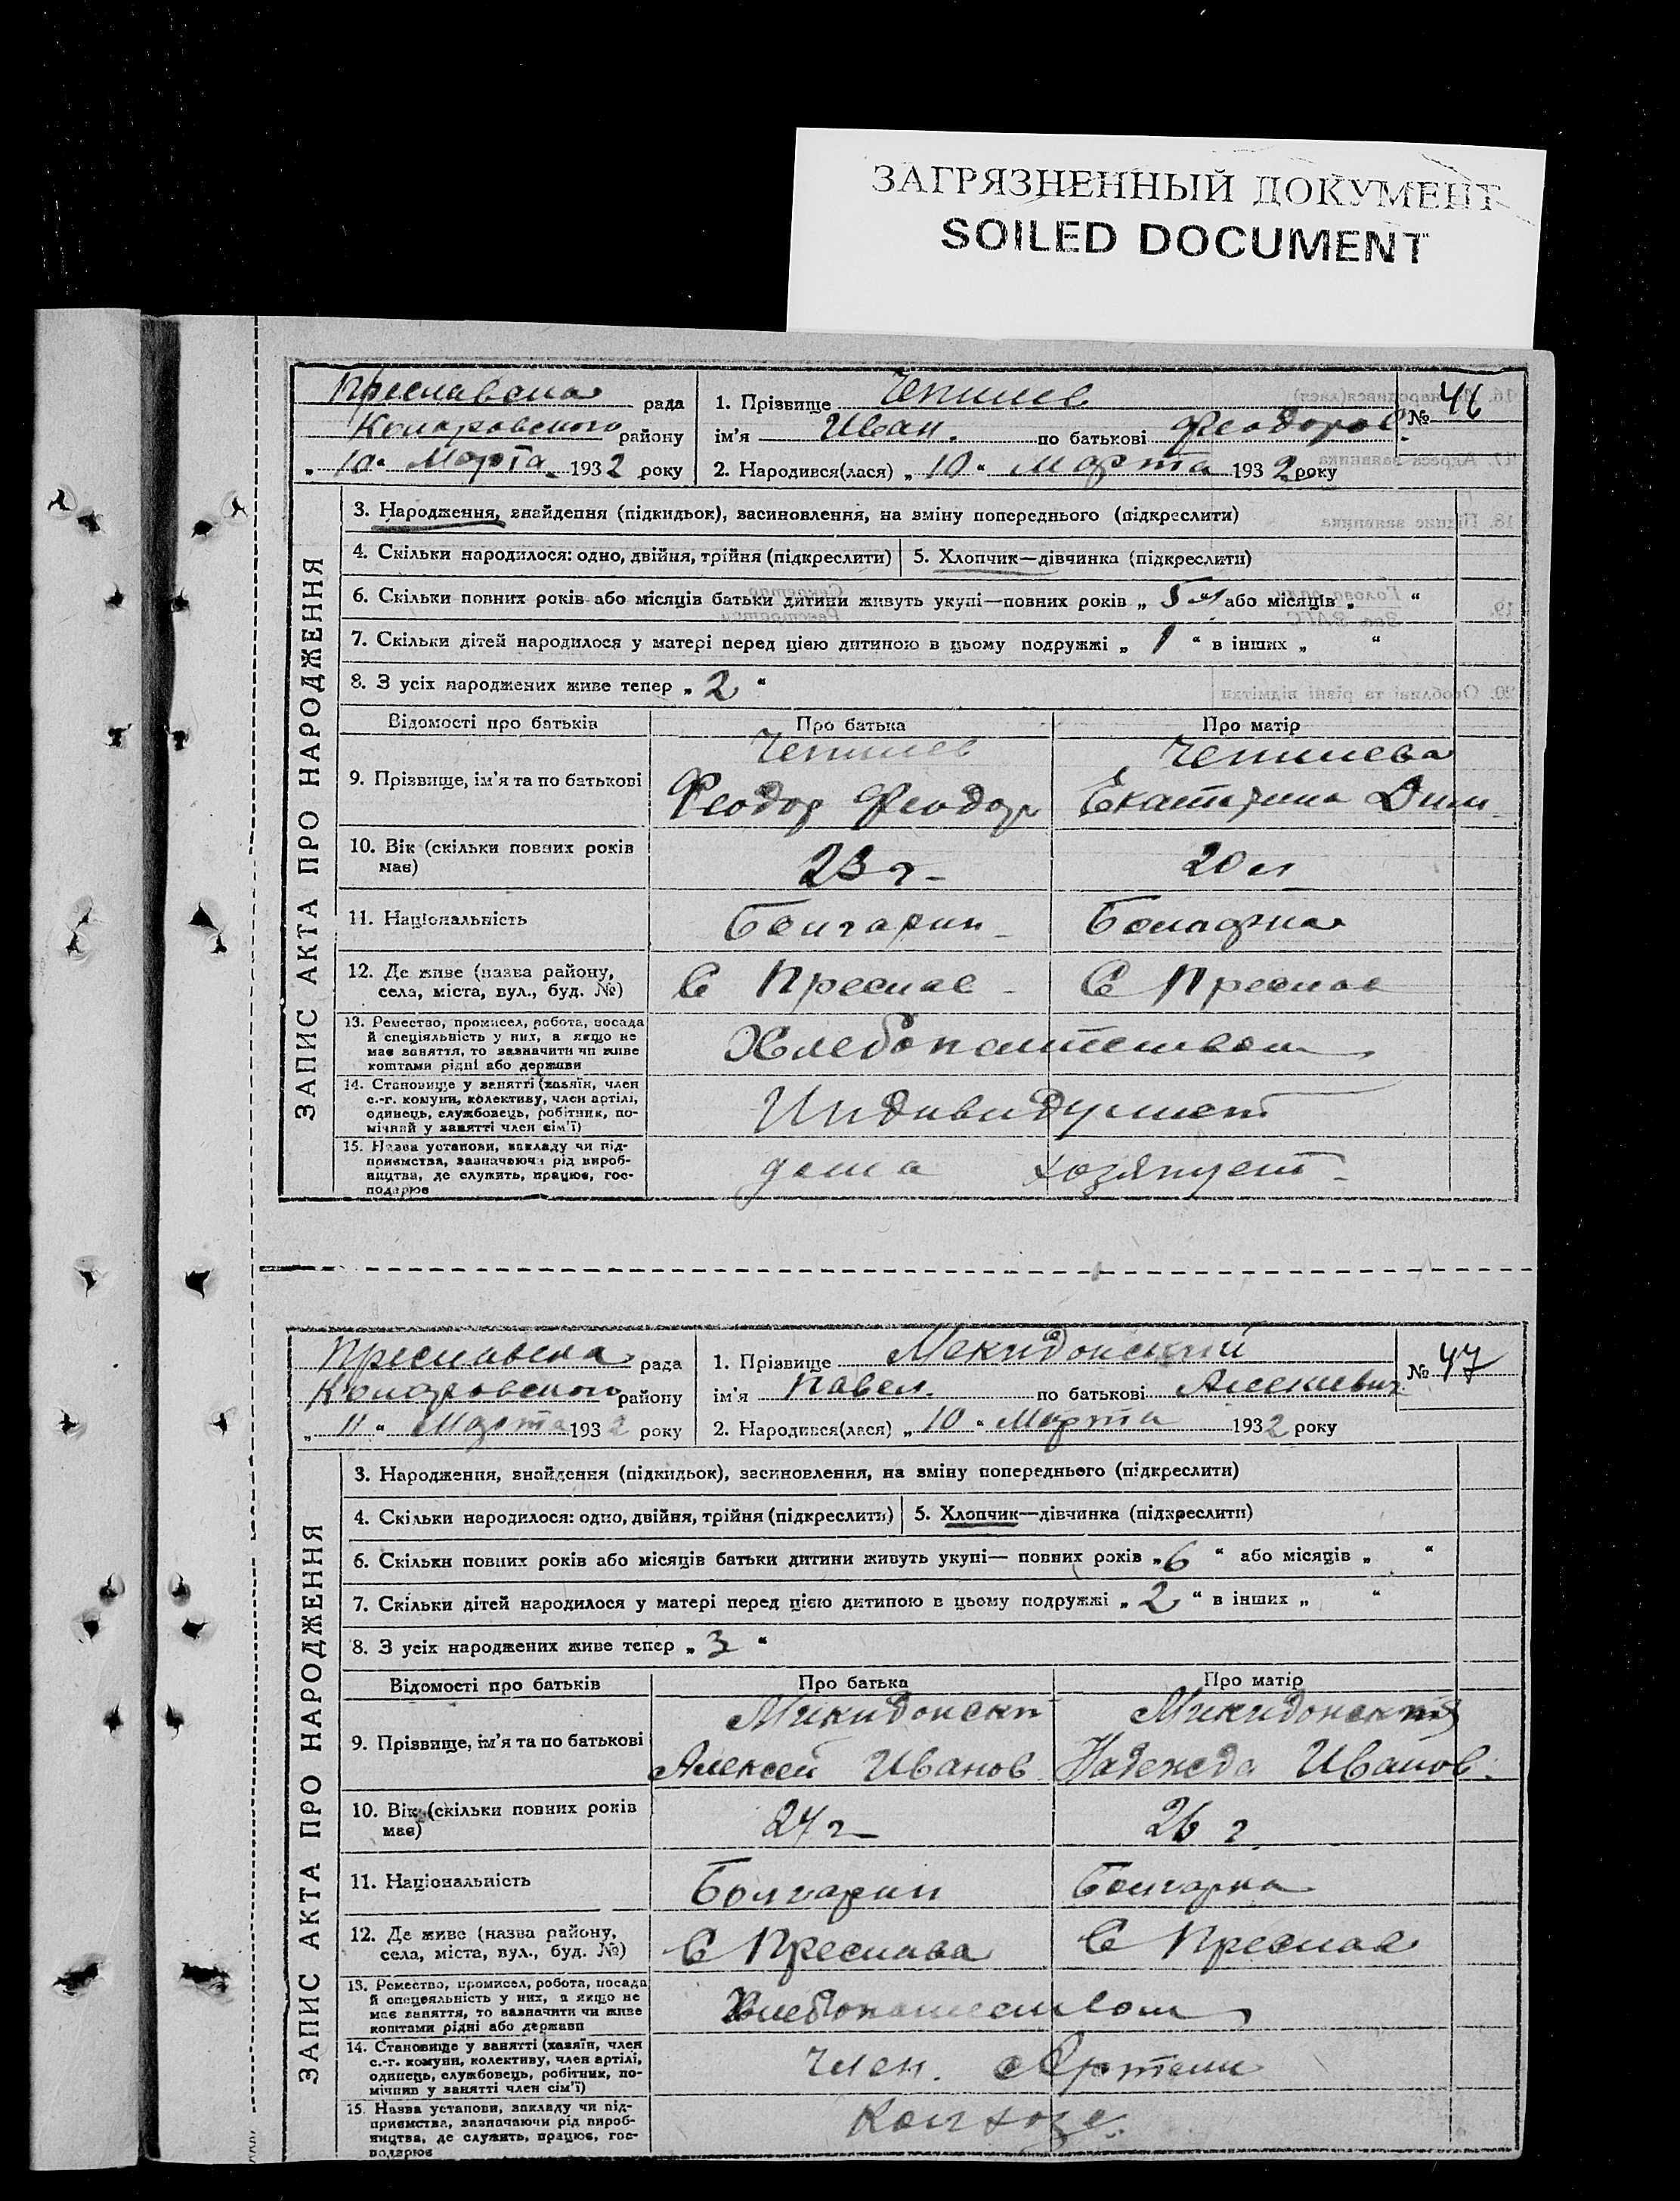 ЗАГРЯЗНЕННЫЙ ДОКУМЕНТ
SOILED DOCUMENT
Преславска рада
Коларовского району
„10“ Марта 1932 року
1. Прізвище Чепилев
ім’я Иван. по батькові Феодоров.
2. Народився(лася) „10“ Марта 1932 року
№ 46
ЗАПИС АКТА ПРО НАРОДЖЕННЯ
3. Народження, знайдення (підкидьок), засиновлення, на зміну попереднього (підкреслити)
4. Скільки народилося: одно, двійня, трійня (підкреслити)
5. Хлопчик—дівчинка (підкреслити)
6. Скільки повних років або місяців батьки дитини живуть укупі—повних років „5“ або місяців „ “
7. Скільки дітей народилося у матері перед цією дитиною в цьому подружжі „1“ в інших „ “
8. З усіх народжених живе тепер „2“
Відомості про батьків
Про батька
Про матір
9. Прізвище, ім’я та по батькові
Чепилев
Феодор Феодор
Чепилева
Екатерина Дим.
10. Вік (скільки повних років має)
23 г
20 л
11. Національність
Болгарин
Болгарка
12. Де живе (назва району, села, міста, вул., буд. №)
С Преслав
С Преслав
13. Ремество, промисел, робота, посада
й спеціяльність у них, а якщо не
має заняття, то зазначити чи живе
коштами рідні або держави
Хлебопашеством
14. Становище у занятті (хазяїн, член
с.-г. комуни, колективу, член артілі,
одинець, службовець, робітник, по-
мічний у занятті член сім’ї)
15. Назва установи, закладу чи під-
приємства, зазначаючи рід вироб-
ництва, де служить, працює, гос-
подарює
дома хозяйнует
Преславска рада
Коларовского району
„11“ Марта 1932 року
1. Прізвище Мекидонский
ім’я Павел. по батькові Алексиевич
2. Народився(лася) „10“ Марта 1932 року
№ 47
ЗАПИС АКТА ПРО НАРОДЖЕННЯ
3. Народження, знайдення (підкидьок), засиновлення, на зміну попереднього (підкреслити)
4. Скільки народилося: одно, двійня, трійня (підкреслити)
5. Хлопчик—дівчинка (підкреслити)
6. Скільки повних років або місяців батьки дитини живуть укупі— повних років „6“ або місяців „ “
7. Скільки дітей народилося у матері перед цією дитиною в цьому подружжі „2“ в інших „ “
8. З усіх народжених живе тепер „3“
Відомості про батьків
Про батька
Про матір
9. Прізвище, ім’я та по батькові
Алексей Иванов.
Надежда Иванов.
10. Вік (скільки повних років має)
24 г
26 г.
11. Національність
Болгарин
Болгарка
12. Де живе (назва району, села, міста, вул., буд. №)
С Преслава
С Преслав
13. Ремество, промисел, робота, посада
й спеціяльність у них, а якщо не
має заняття, то зазначити чи живе
коштами рідні або держави
Хлебопашеством
14. Становище у занятті (хазяїн, член
с.-г. комуни, колективу, член артілі,
одинець, службовець, робітник, по-
мічний у занятті член сім’ї)
Член. Артели
15. Назва установи, закладу чи під-
приємства, зазначаючи рід вироб-
ництва, де служить, працює, гос-
подарює
Колхозе.